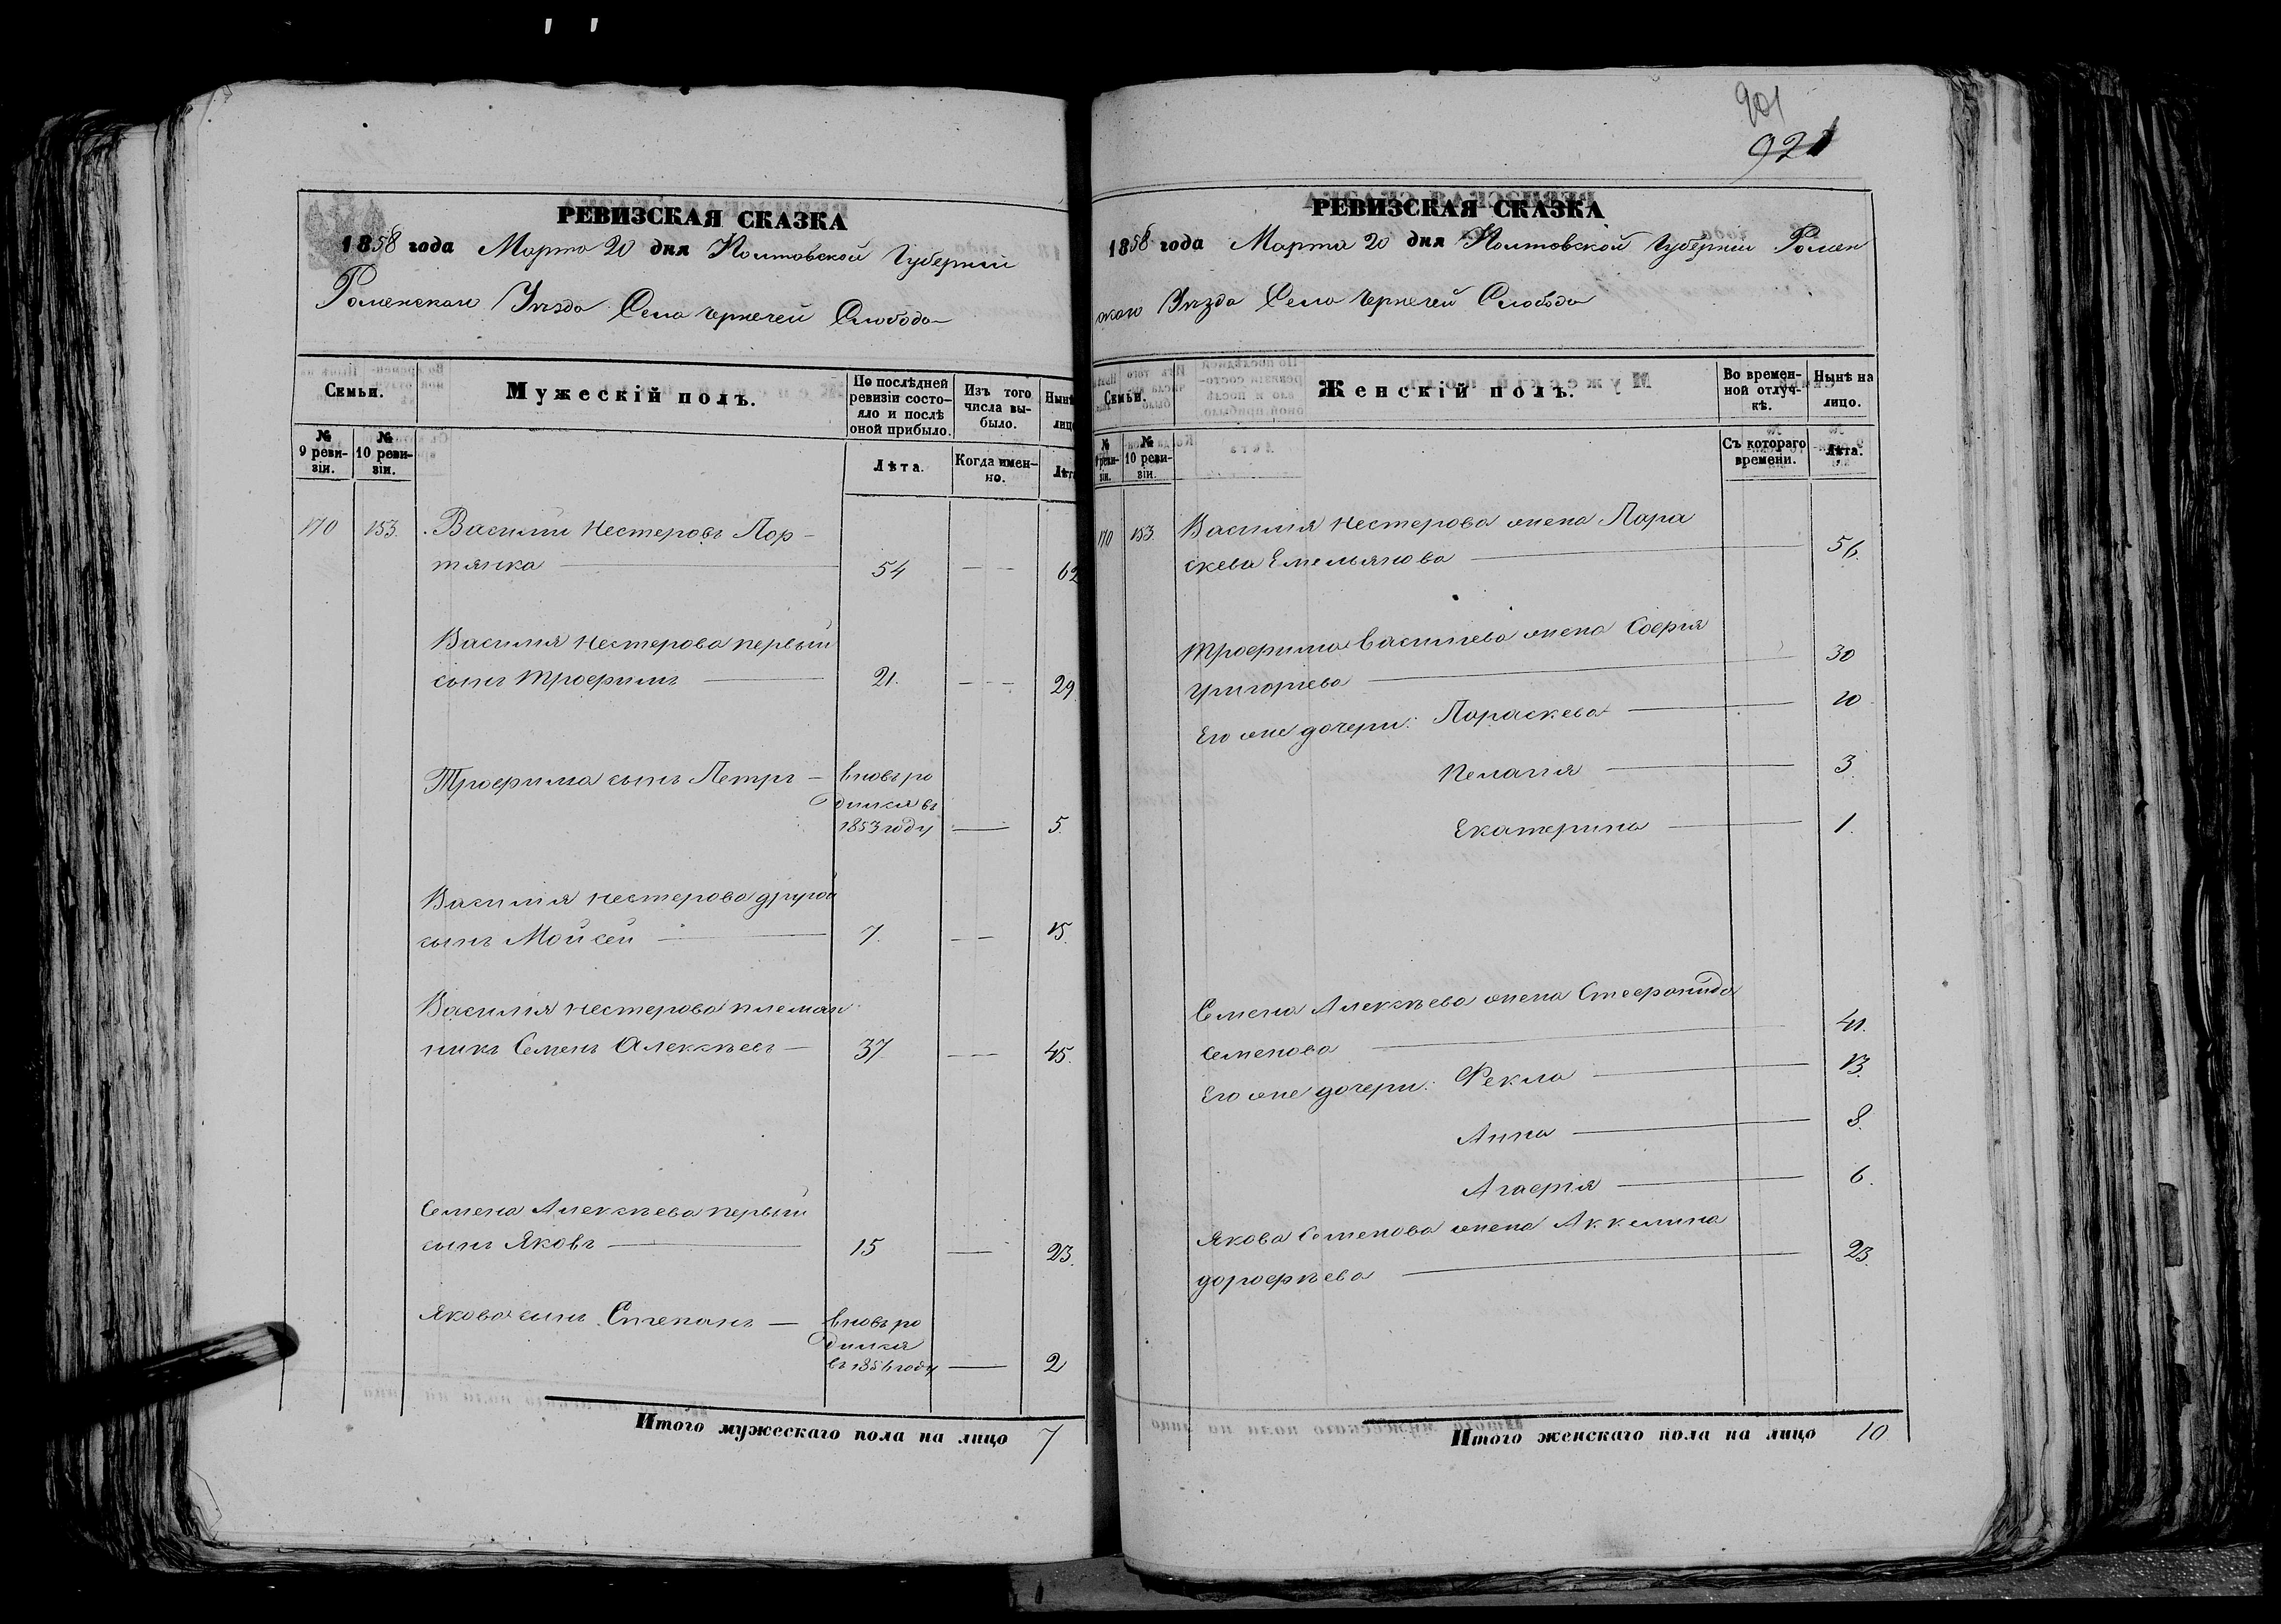 901
921
РЕВИЗСКАЯ СКАЗКА
1858 года Марта 20 дня Полтавской Губерніи
Роменскаго Уѣзда Села Чернечей Слободы
Семьи.
Мужескій полъ.
По послѣдней ревизіи состояло и послѣ оной прибыло.
Изъ того числа выбыло.
Нынѣ лицо
№ 9 ревизіи.
№ 10 ревизіи.
Лѣта.
Когда именно.
Лѣта
170 153. Василій Нестеровъ Пор-
тянка 54 62
Василія Нестерова первый
сынъ Трофимъ 21. 29
Трофима сынъ Петръ вновь ро
дился въ
1853 году 5.
Василія Нестерова другой
сынъ Мойсей 7. 15.
Василія Нестерова племян
никъ Семенъ Алексѣевъ 37 45.
Семена Алексѣева первый
сынъ Яковъ 15 23.
Якова сынъ Степанъ вновь ро
дился
въ 1856 году 2
Итого мужескаго пола на лицо 7
РЕВИЗСКАЯ СКАЗКА
1858 года Марта 20 дня Полтавской Губерніи Ромен
скаго Уѣзда Села Чернечей Слободы
Семьи.
Женскій полъ.
Во временной отлучкѣ.
Нынѣ на лицо.
№ 9 ревизіи.
№ 10 ревизіи.
Съ котораго времени.
Лѣта.
170 153. Василія Нестерова жена Пара
скева Емельянова 56.
Трофима Васильева жена Софія
Григорьева 30
Его же дочери: Параскева 10
Пелагія 3.
Екатерина 1.
Семена Алексѣева жена Стефанида
Семенова 41.
Его же дочери: Фекла 13.
Анна 8.
Агафія 6.
Якова Семенова жена Аккилина
дорофѣева 23.
Итого женскаго пола на лицо 10